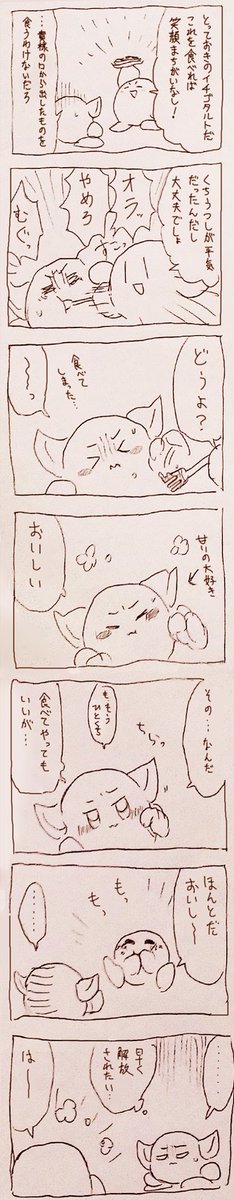 とっておきのイチゴタルトだ
これを食べれば
笑顔まちがいなし!
…貴様の口から出したものを
食うわけないだろ
くちうつしが平気
だったんだし
大丈夫でしょ
オラッ
やめろ
むぐっ
どうよ?
食べて
しまった…
〜〜っ
甘いの大好き
おいしい
その…なんだ
ももうひとくち
ちらっ
食べてやっても
いいが…
ほんとだ
おいし〜
もっ
もっ
………
………
早く
解放
されたい…
はー